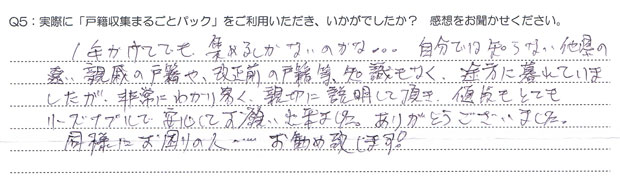 Q5：実際に「戸籍収集まるごとパック」をご利用いただき、いかがでしたか？ 感想をお聞かせください。
1年かけてでも 集めるしかないのかな… 自分では知らない他県の
遠い親戚の戸籍や、改正前の戸籍等、知識もなく、途方に暮れていま
したが、非常にわかり易く、親切に説明して頂き、値段もとても
リーズナブルで安心してお願い出来ました。ありがとうございました。
同様にお困りの人…… お勧め致します!